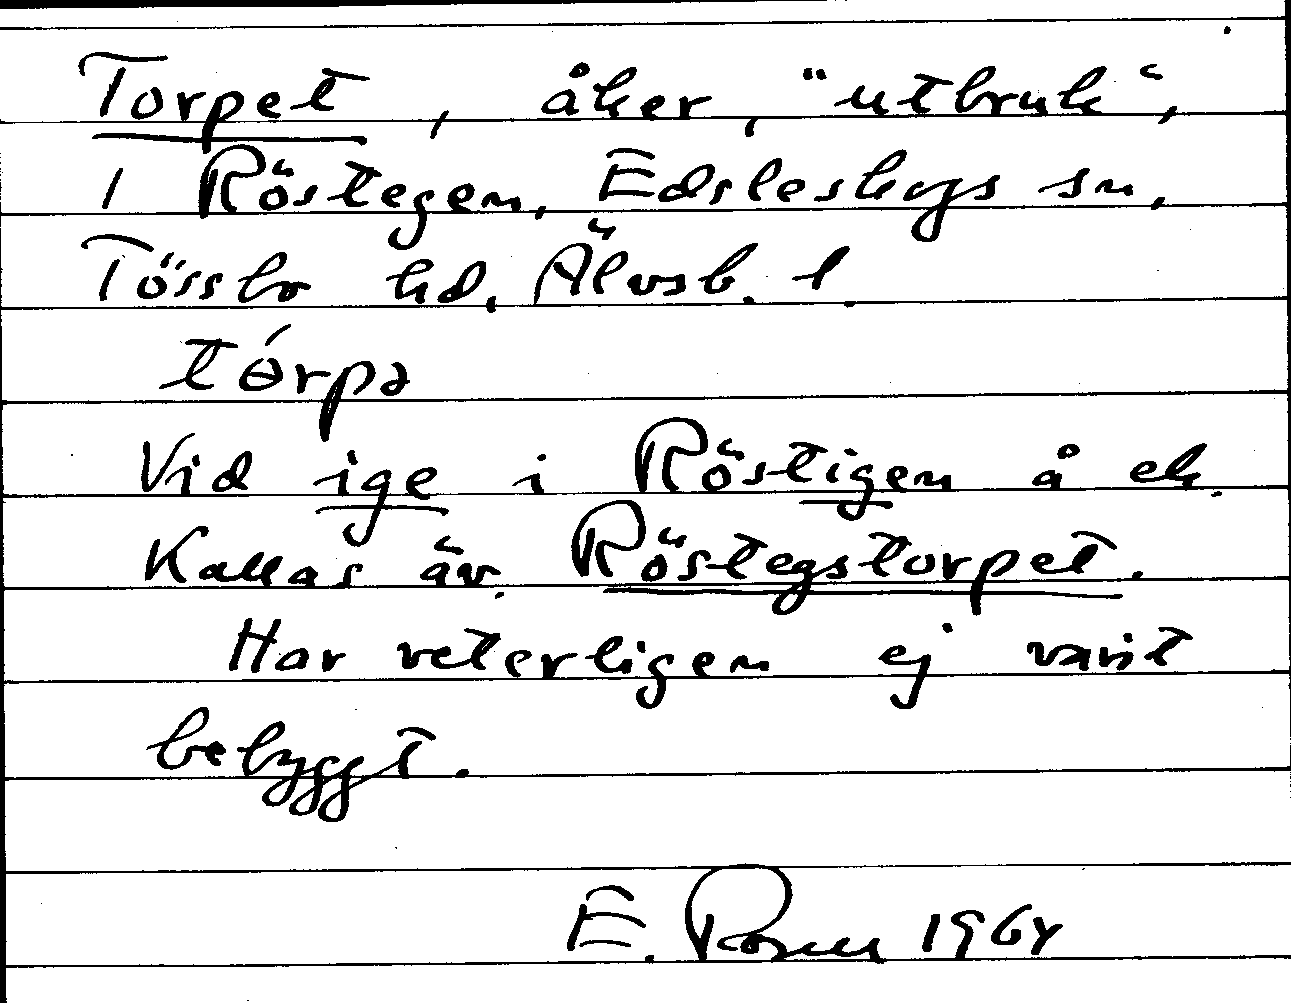 Torpet, åker, "utbruk",
i Röstegen, Edsleskogs sn,
Tössbo hd, Älvsb. l.
tɵ́rpə
Vid ige i Röstigen å ek.
Kallas äv. Röstegstorpet.
Har veterligen ej varit
bebyggt.
E. 1964